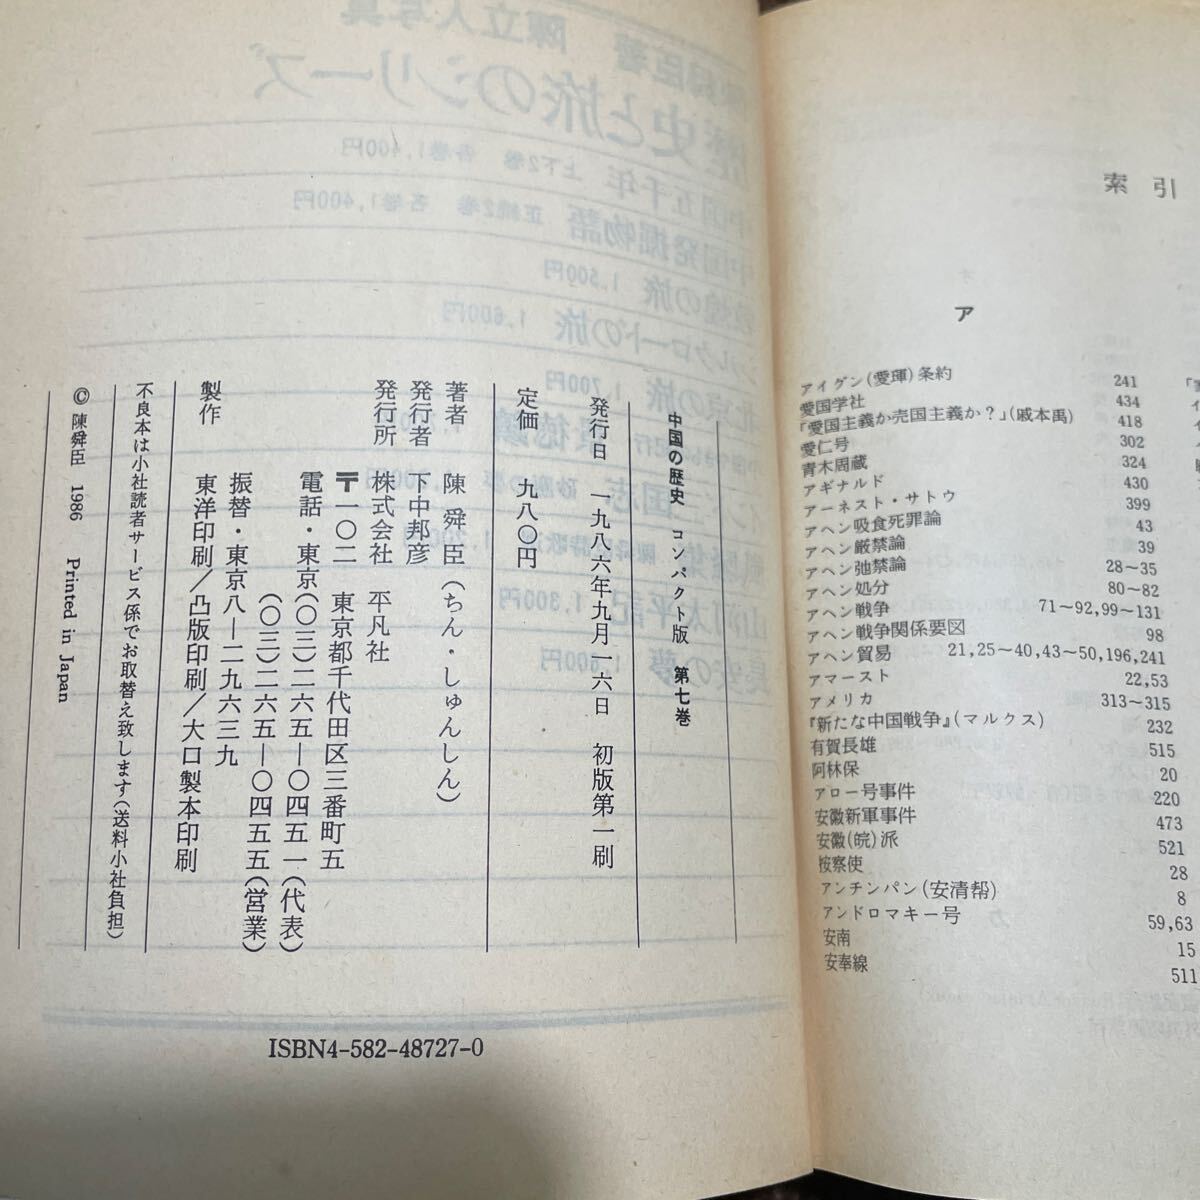 中国の歴史 コンパクト版 第七巻
発行日 一九八六年九月一六日 初版第一刷
定価 九八〇円
著者 陳舜臣(ちん・しゅんしん)
発行者 下中邦彦
発行所 株式会社 平凡社
〒一〇二 東京都千代田区三番町五
電話・東京(〇三)二六五―〇四五一(代表)
(〇三)二六五―〇四五五(営業)
振替・東京八―二九六三九
製作 東洋印刷/凸版印刷/大口製本印刷
不良本は小社読者サービス係でお取替え致します(送料小社負担)
© 陳舜臣 1986 Printed in Japan
ISBN4-582-48727-0
索引
ア
アイグン(愛琿)条約 241
愛国学社 434
「愛国主義か売国主義か?」(戚本禹) 418
愛仁号 302
青木周蔵 324
アギナルド 430
アーネスト・サトウ 399
アヘン吸食死罪論 43
アヘン厳禁論 39
アヘン弛禁論 28~35
アヘン処分 80~82
アヘン戦争 71~92,99~131
アヘン戦争関係要図 98
アヘン貿易 21,25~40,43~50,196,241
アマースト 22,53
アメリカ 313~315
『新たな中国戦争』(マルクス) 232
有賀長雄 515
阿林保 20
アロー号事件 220
安徽新軍事件 473
安徽(皖)派 521
按察使 28
アンチンパン(安清幇) 8
アンドロマキー号 59,63
安南 15
安奉線 511